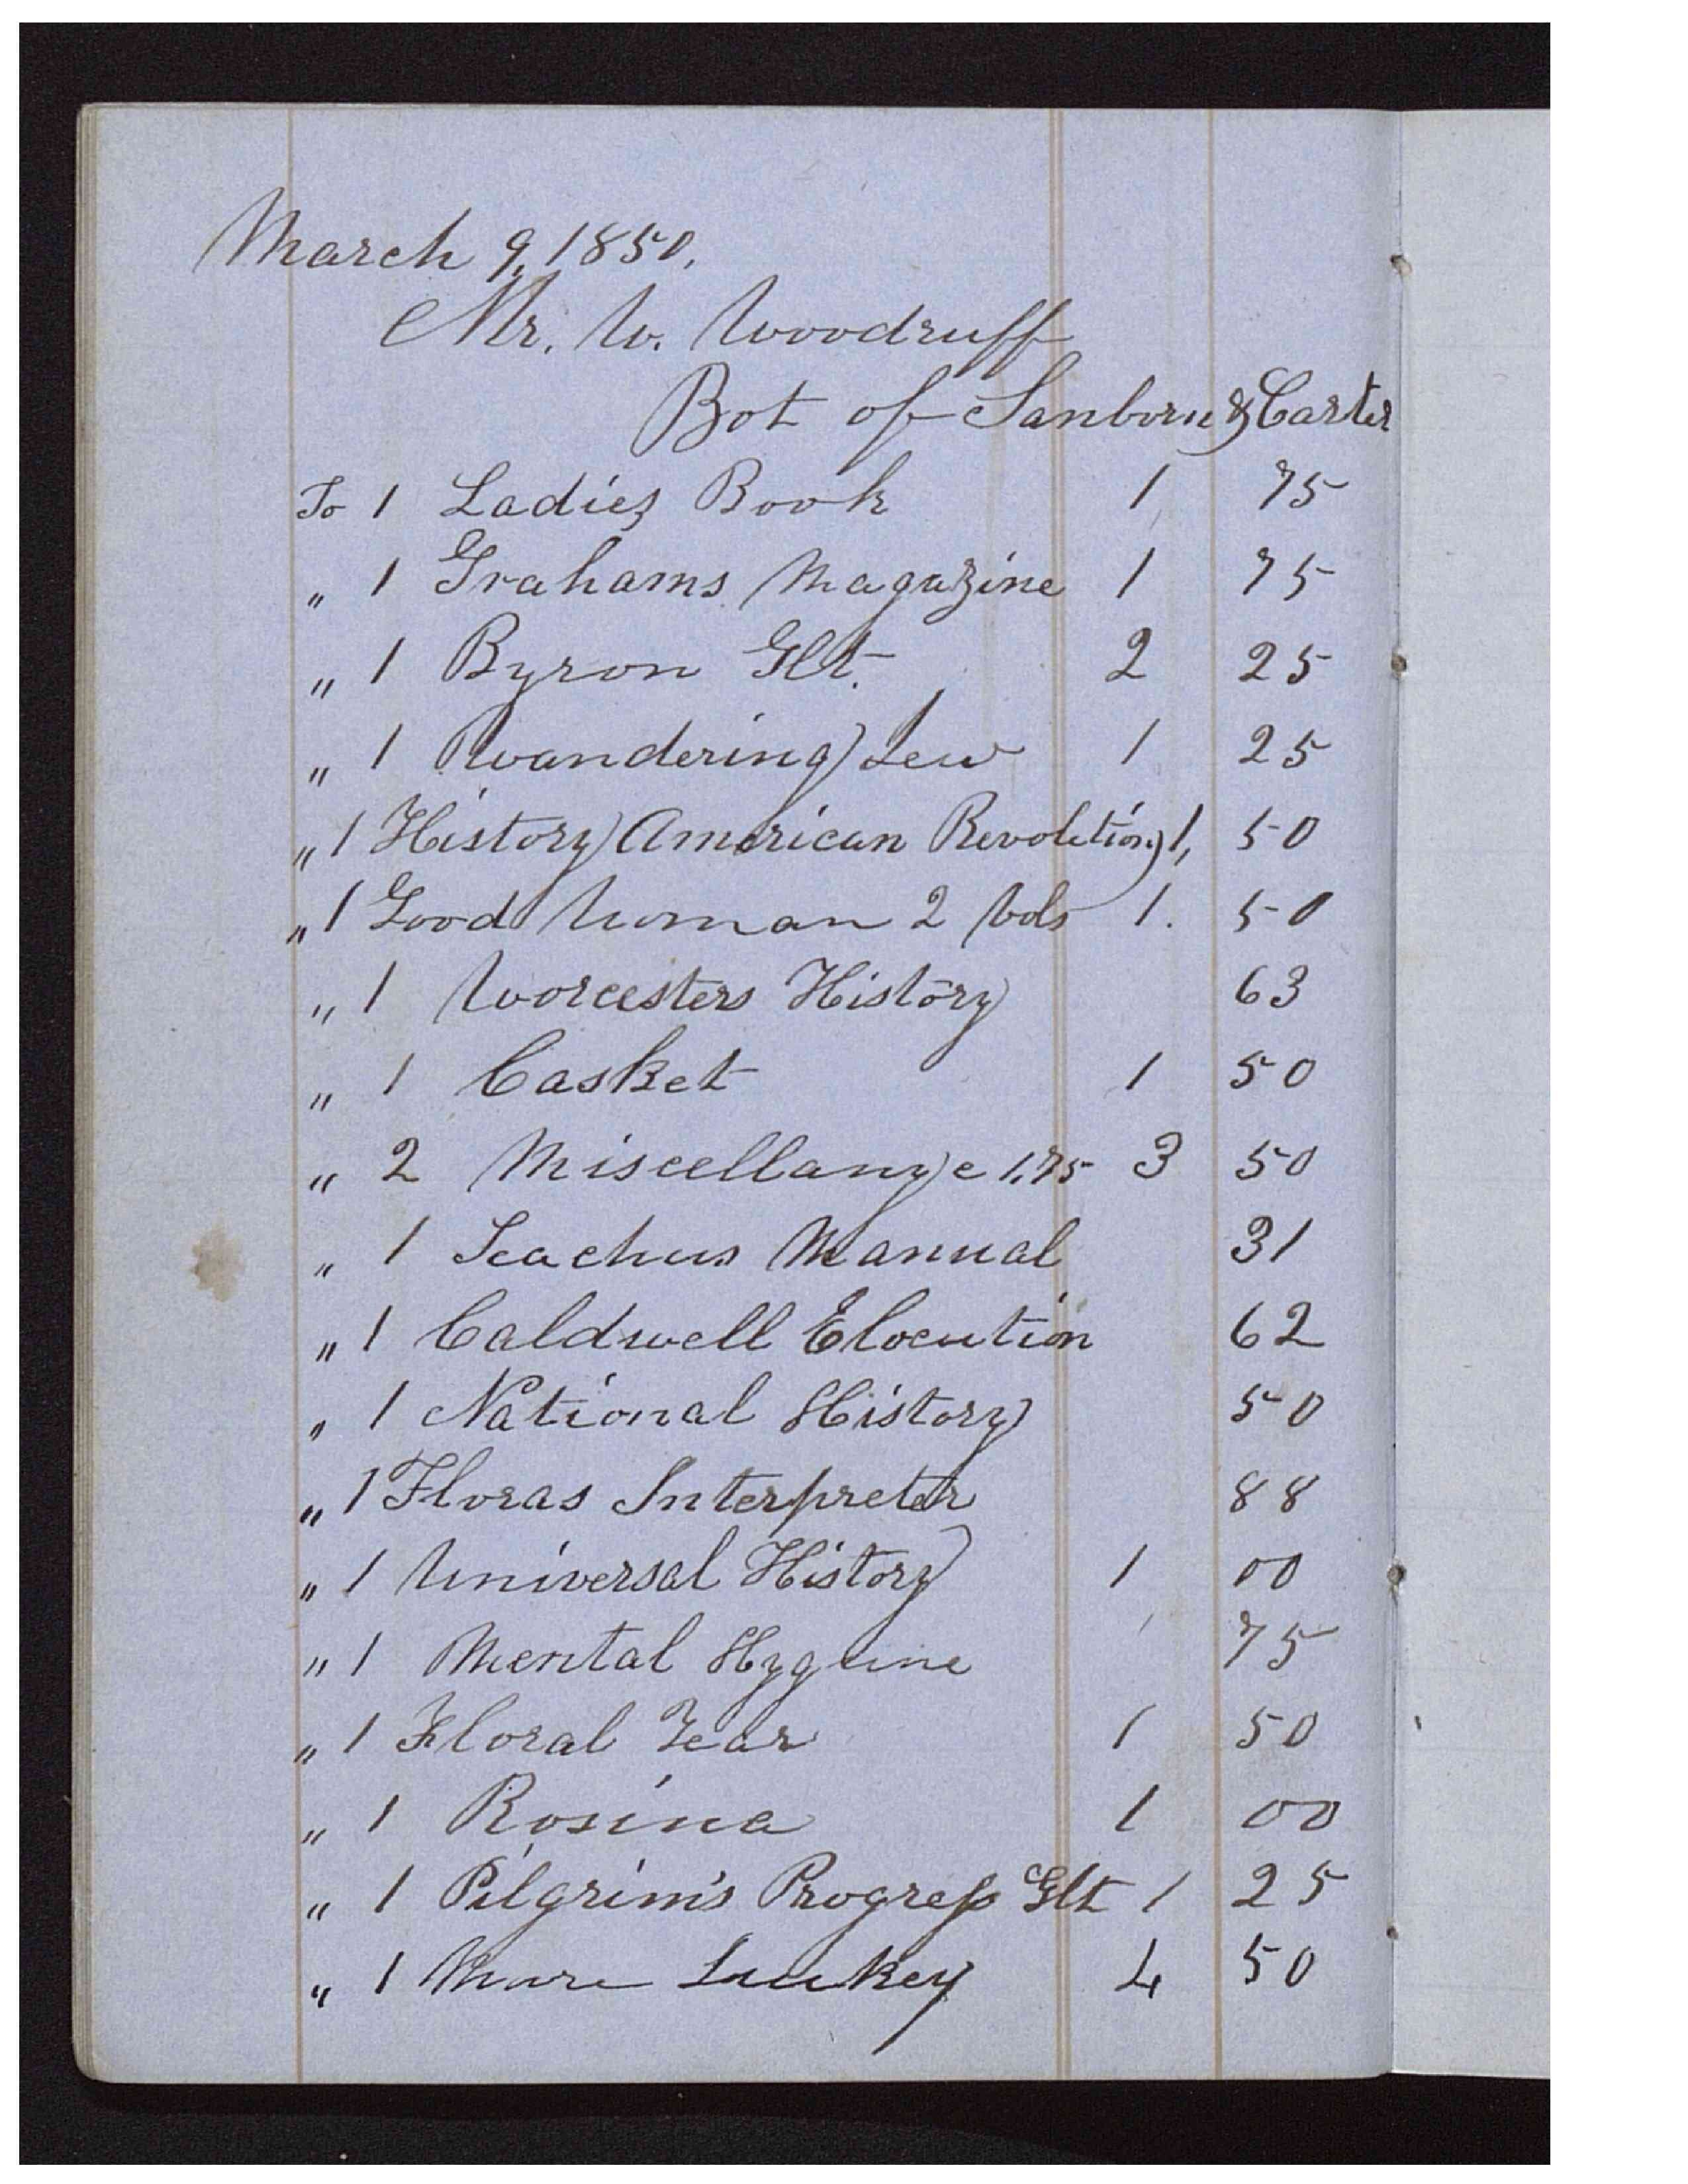 March 9, 1850.
Mr. W. Woodruff
Bot of Sanborn & Carter
To 1 Ladies Book 1 75
" 1 Grahams Magazine 1 75
" 1 Byron Glt. 2 25
" 1 Wandering Jew 1 25
" 1 History American Revolution 1, 50
" 1 Good Woman 2 Vols 1. 50
" 1 Worcesters History 63
" 1 Casket 1 50
" 2 Miscellany e 1.75 3 50
" 1 Teachers Manual 31
" 1 Caldwell Elocution 62
" 1 National History 50
" 1 Floras Interpreter 88
" 1 Universal History 1 00
" 1 Mental Hygeine 75
" 1 Floral Year 1 50
" 1 Rosina 1 00
" 1 Pilgrim's Progress Glt 1 25
" 1 4 50